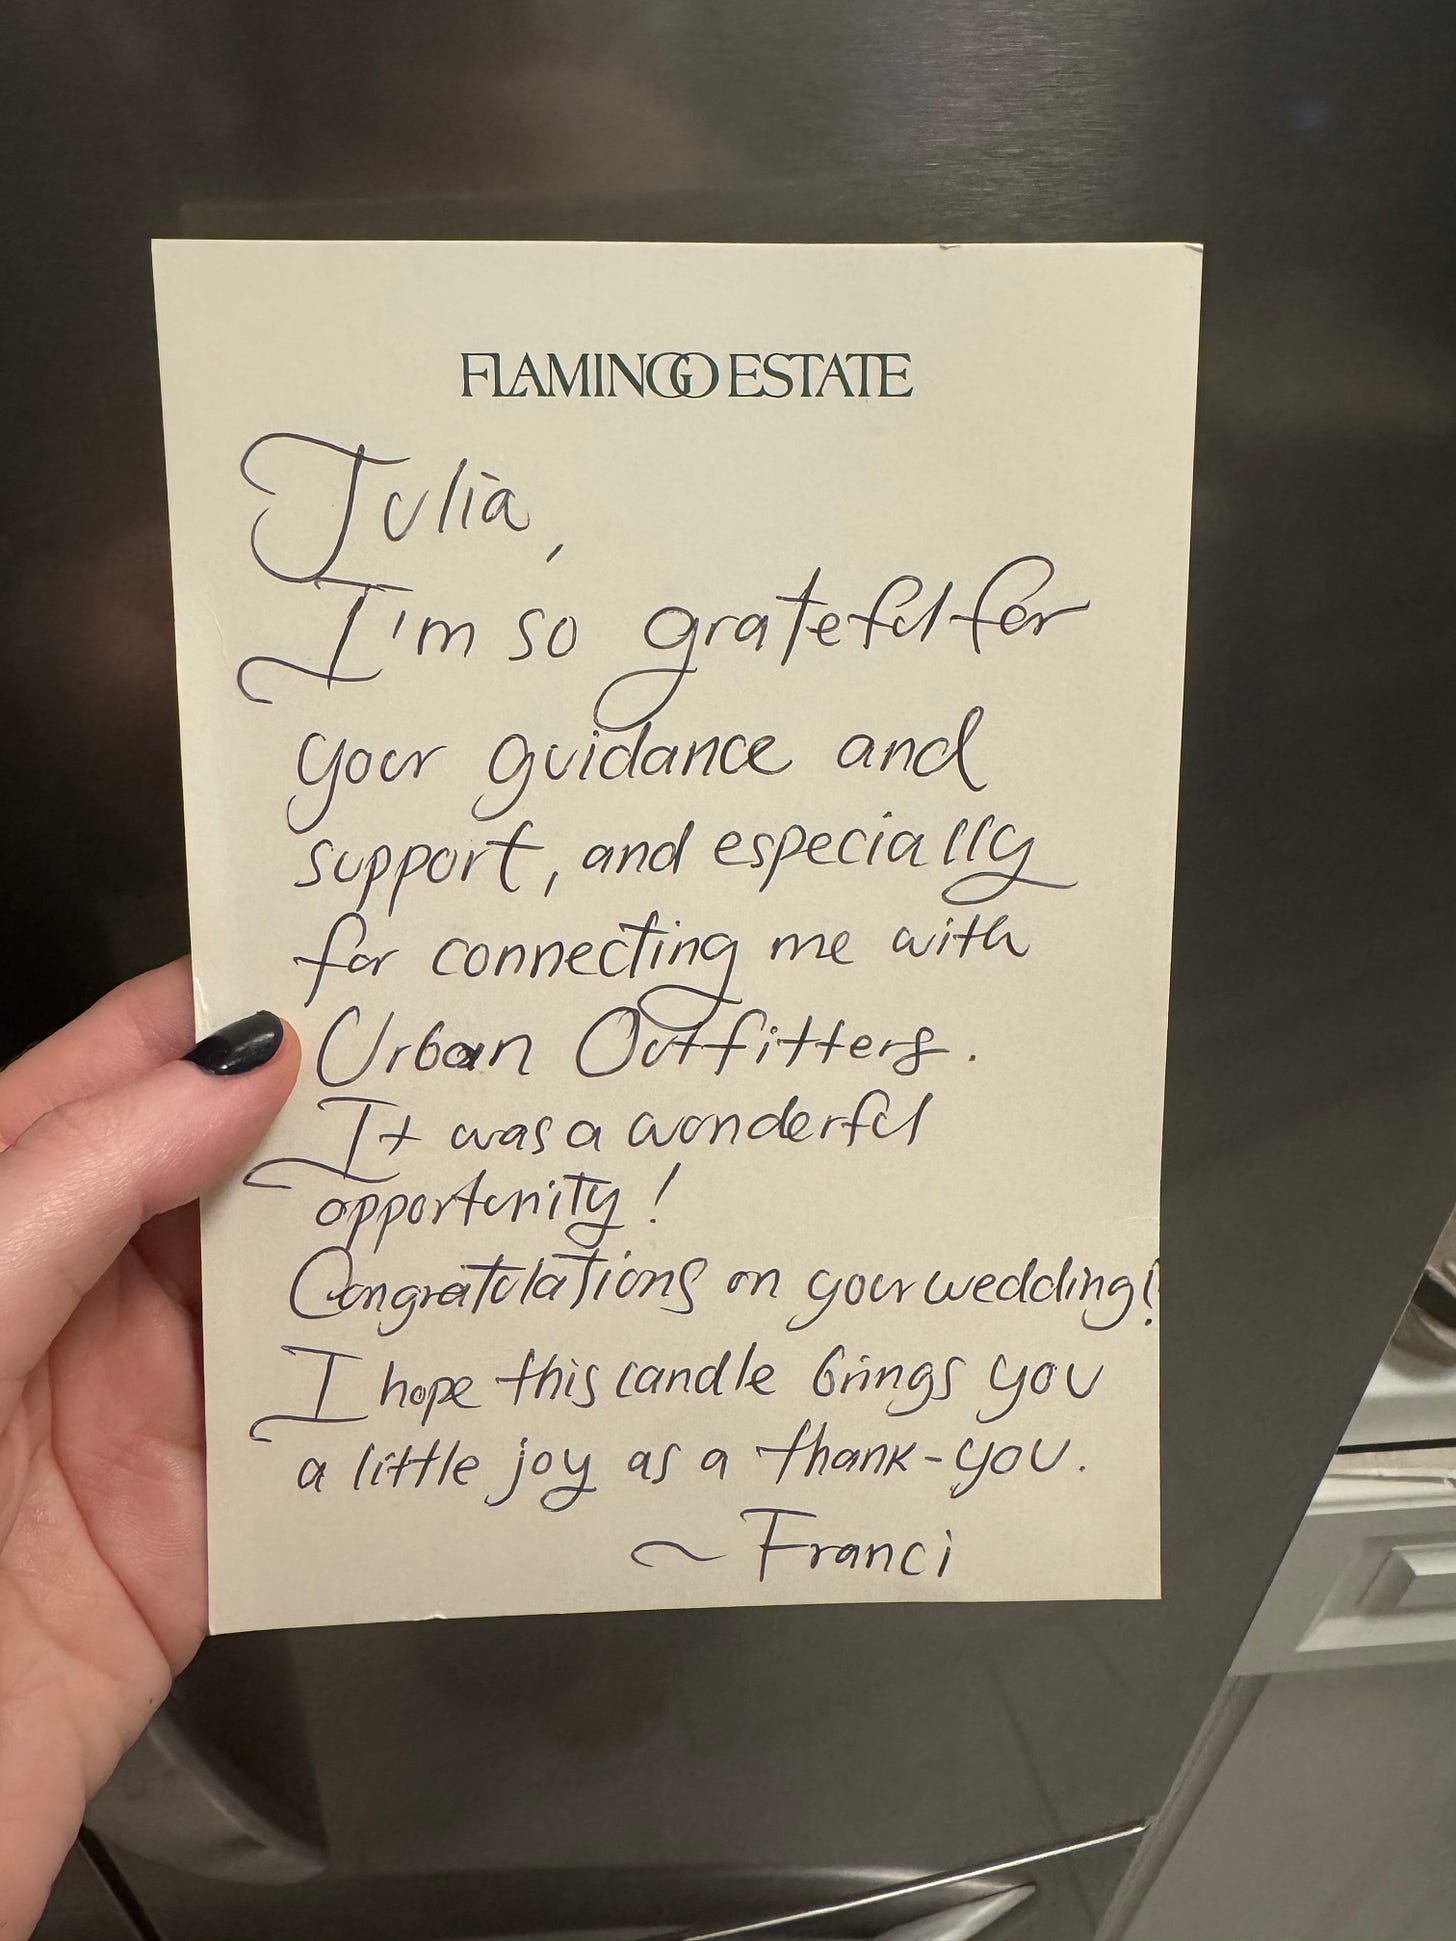 FLAMINGO ESTATE
Julia,
I'm so grateful for
your guidance and
support, and especially
for connecting me with
Urban Outfitters.
It was a wonderful
opportunity!
Congratulations on your wedding!
I hope this candle brings you
a little joy as a thank-you.
~ Franci